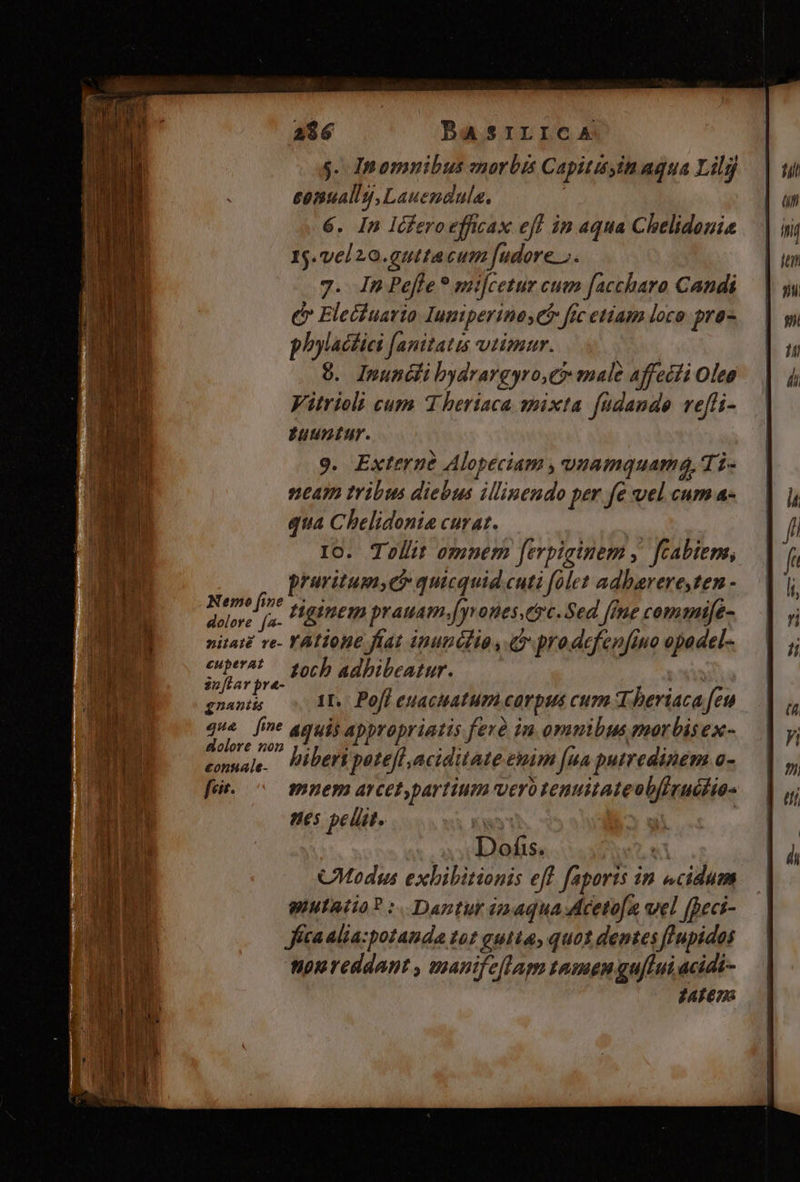 286 BASILICA
5. In omnibus morbis Capitis, in aqua Lilij
conuallij, Lauendulæ.
6. In Ictero efficax est in aqua Chelidoniæ
15. vel 20. gutta cum sudore.
7. In Peste° miscetur cum saccharo Candi
& Electuario Iuniperino, & sic etiam loco pro-
phylactici sanitatis vtimur.
8. Inuncti hydrargyro, & malè affecti Oleo
Vitrioli cum Theriaca mixta sudando resti-
tuuntur.
9. Externè Alopeciam, vnamquamq, Ti-
neam tribus diebus illinendo per se vel cum a-
qua Chelidoniæ curat.
10. Tollit omnem serpiginem, scabiem,
pruritum, & quicquid cuti solet adhærere, ten-
tiginem prauam, syrones, &c. Sed sine commise-
ratione fiat inunctio, & pro defensiuo opodel-
toch adhibeatur.
11. Post euacuatum corpus cum Theriaca seu
aquis appropriatis ferè in omnibus morbis ex-
hiberi potest, aciditate enim sua putredinem o-
mnem arcet, partium verò tenuitate obstructio-
nes pellit.
Nemo sine
dolore sa-
nitatē re-
cuperat
instar præ-
gnantis
quæ sine
dolore non
conuale-
scit.
Dosis.
Modus exhibitionis est saporis in acidum
mutatio°: Dantur in aqua Acetosæ vel speci-
fica alia: potanda tot guttæ, quot dentes stupidos
non reddant, manifestam tamen gustui acidi-
tatem